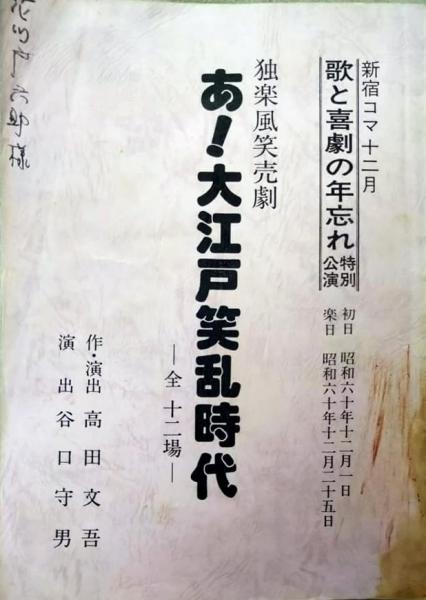 新宿コマ十二月
歌と喜劇の年忘れ特別公演
初日 昭和六十年十二月一日
楽日 昭和六十年十二月二十五日
独楽風笑売劇
あ!大江戸笑乱時代
―全 十二場―
作・演出 高田文吾
演出 谷口守男
様